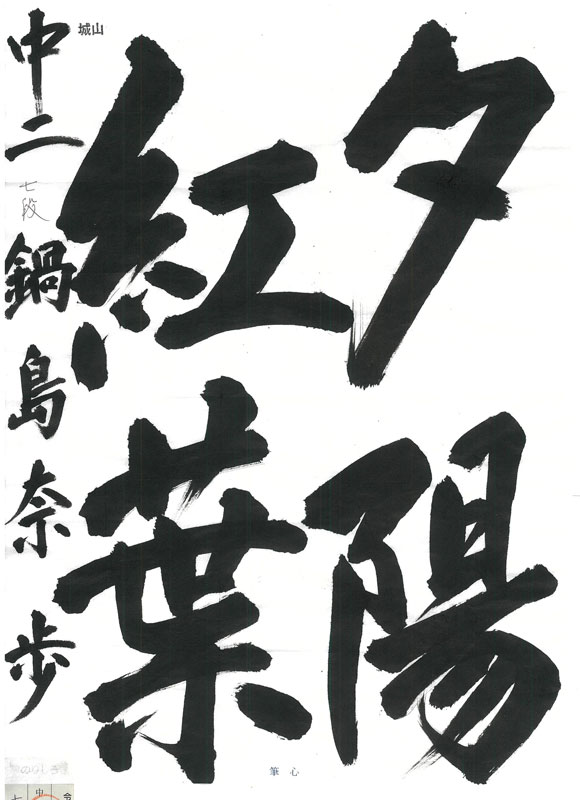 夕陽
紅葉
城山
中二 七段 鍋島奈歩
筆心